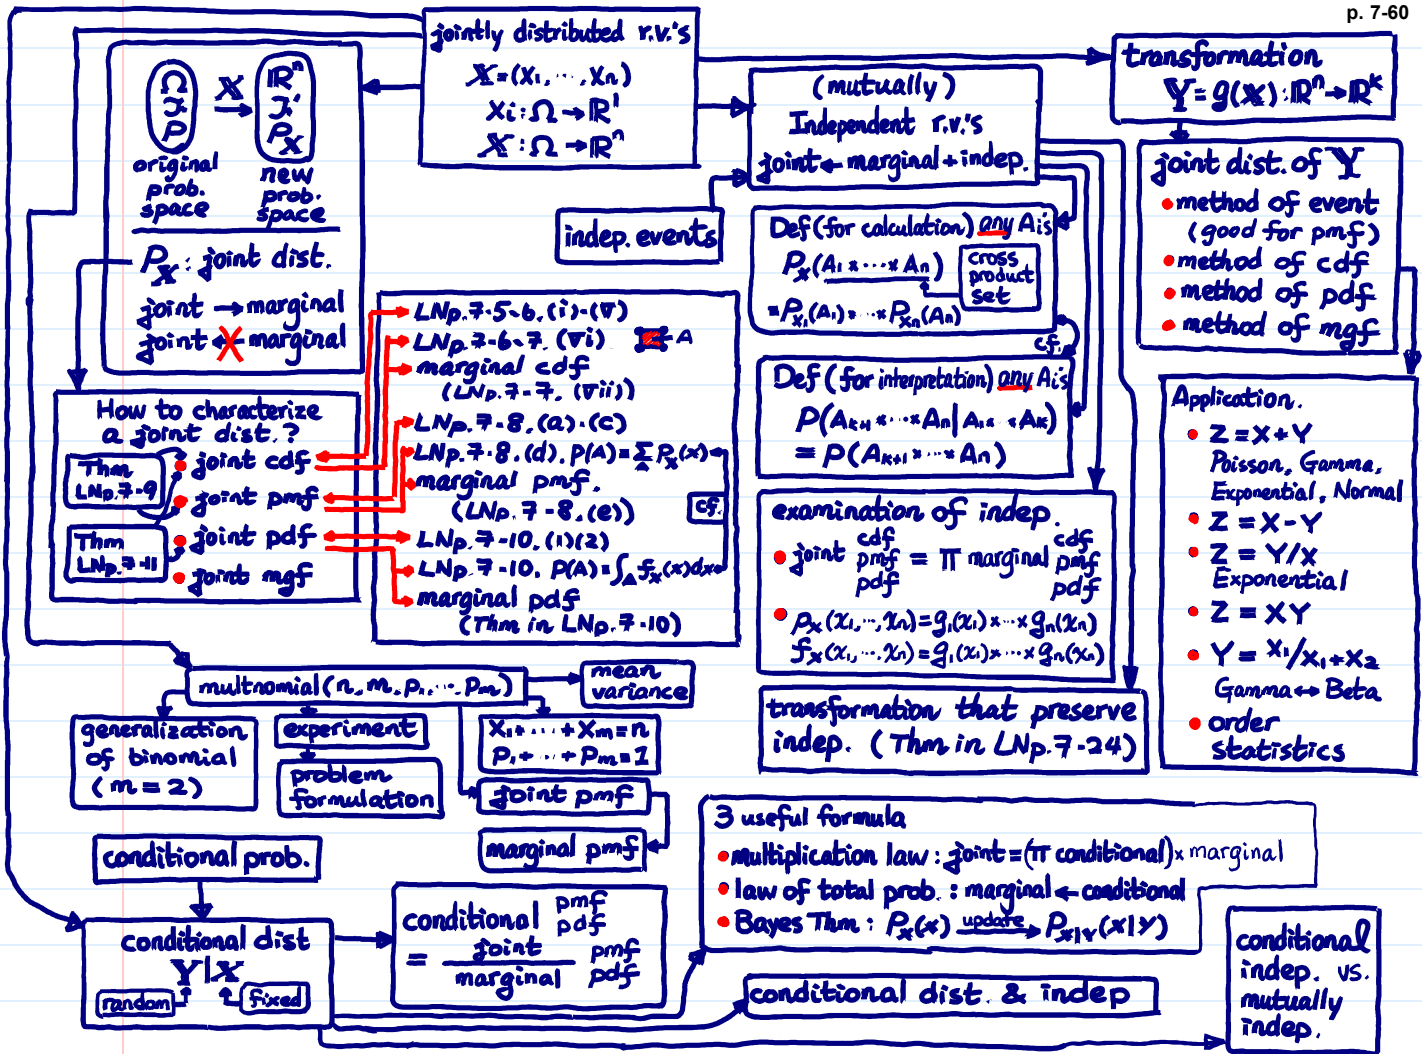 p. 7-60
jointly distributed r.v.'s
X = (X1, ..., Xn)
Xi : Ω → R¹
X : Ω → Rⁿ
Ω
F
P
X
→
Rⁿ
F'
PX
original
prob.
space
new
prob.
space
PX : joint dist.
joint → marginal
joint ← marginal
How to characterize
a joint dist.?
joint cdf
joint pmf
joint pdf
joint mgf
Thm
LNp.7-9
Thm
LNp.7-11
LNp.7-5~6, (i)~(v)
LNp.7-6~7, (vi)
A
marginal cdf
(LNp.7-7, (vii))
LNp.7-8, (a)~(c)
LNp.7-8, (d), P(A) = Σ_A PX(x)
marginal pmf.
(LNp.7-8, (e))
cf.
LNp.7-10, (1)(2)
LNp.7-10, P(A) = ∫_A fX(x)dx
marginal pdf
(Thm in LNp.7-10)
(mutually)
Independent r.v.'s
joint ← marginal + indep.
indep. events
Def (for calculation) any Ai's
PX(A1 × ... × An)
cross
product
set
= PX1(A1) × ... × PXn(An)
cf.
Def (for interpretation) any Ai's
P(Ak+1 × ... × An | A1 × ... × Ak)
= P(Ak+1 × ... × An)
examination of indep.
joint cdf pmf pdf = π marginal cdf pmf pdf
pX(x1, ..., xn) = g1(x1) × ... × gn(xn)
fX(x1, ..., xn) = g1(x1) × ... × gn(xn)
transformation that preserve
indep. (Thm in LNp.7-24)
transformation
Y = g(X) : Rⁿ → Rᵏ
joint dist. of Y
method of event
(good for pmf)
method of cdf
method of pdf
method of mgf
Application.
Z = X + Y
Poisson, Gamma,
Exponential, Normal
Z = X - Y
Z = Y/X
Exponential
Z = XY
Y = X1/X1+X2
Gamma ↔ Beta
order
statistics
multnomial(n, m, p1, ..., pm)
mean
variance
generalization
of binomial
(m = 2)
experiment
problem
formulation
X1 + ... + Xm = n
P1 + ... + Pm = 1
joint pmf
marginal pmf
conditional prob.
conditional dist
Y|X
random
fixed
conditional pmf pdf
= joint / marginal pmf pdf
3 useful formula
multiplication law : joint = (π conditional) × marginal
law of total prob. : marginal ← conditional
Bayes Thm : PX(x) update → PX|Y(x|y)
conditional dist. & indep
conditional
indep. vs.
mutually
indep.